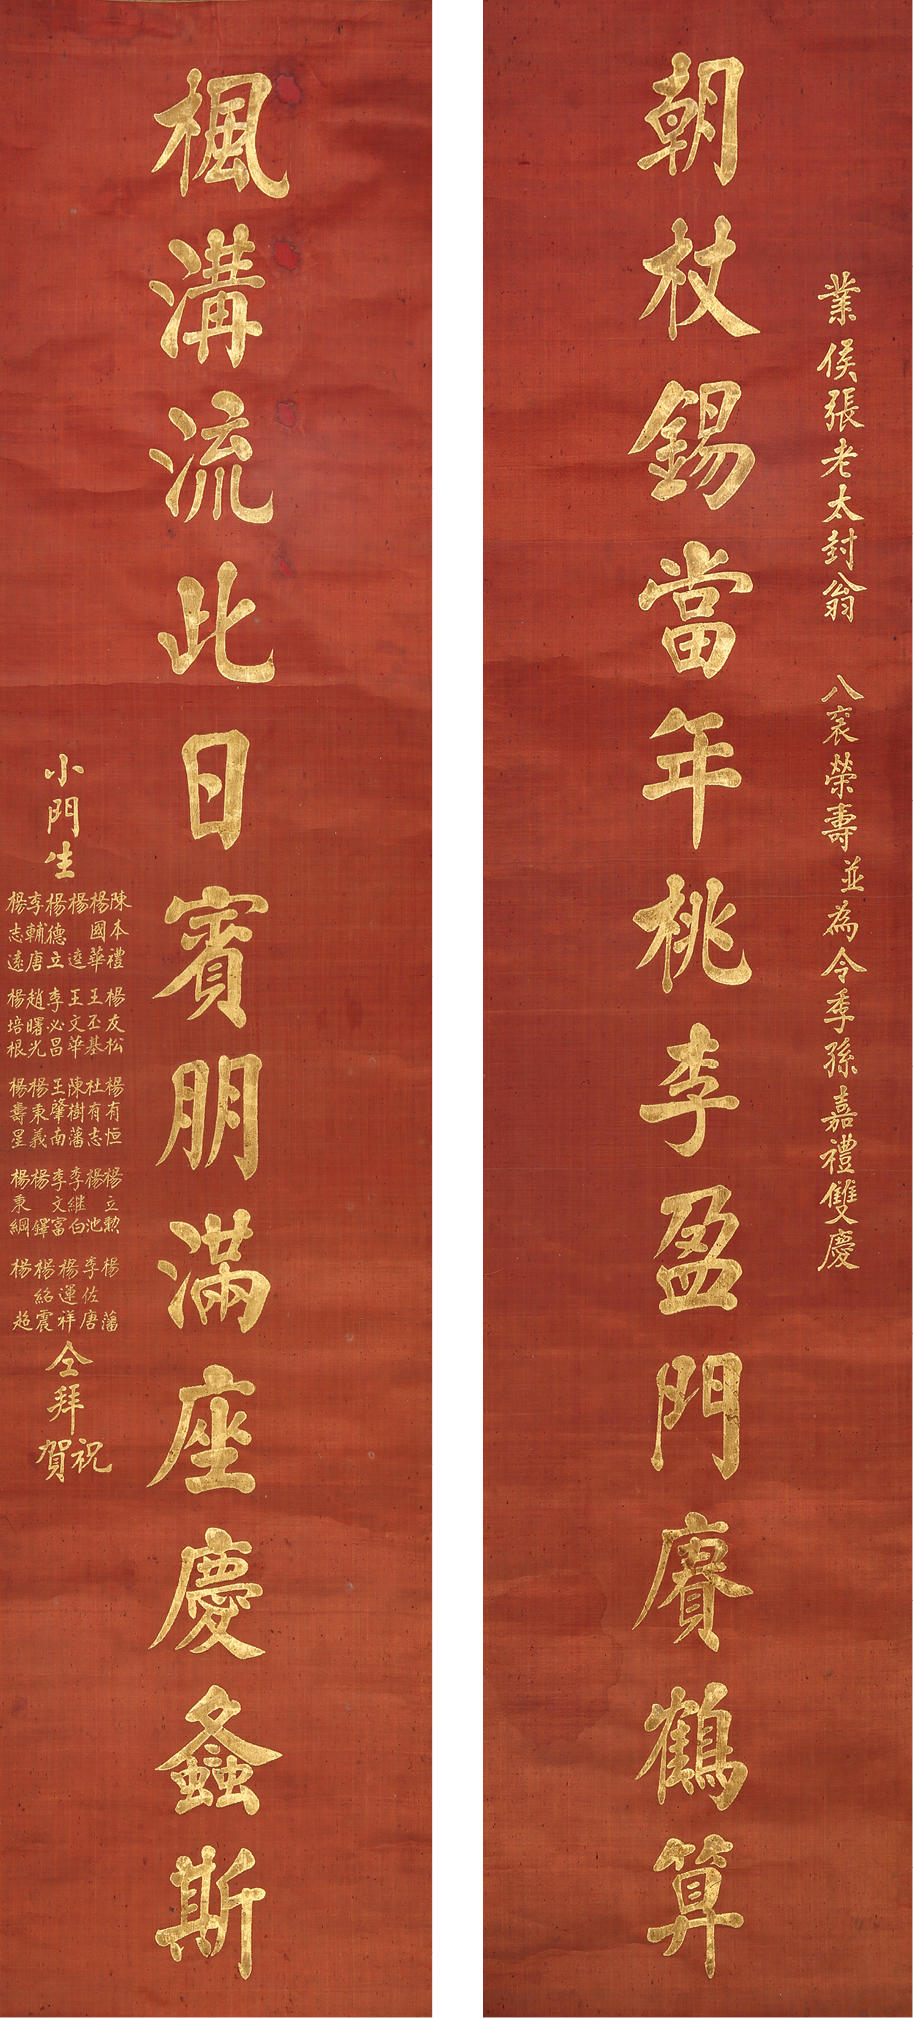 業侯張老太封翁 八袠榮壽並為令季孫嘉禮雙慶
朝杖錫當年桃李盈門賡鶴算
楓溝流此日賓朋滿座慶螽斯
小門生
陳本禮 楊國華 楊逵 楊德立 李輔唐 楊志遠
楊友松 王丕基 王文華 李必昌 趙曙光 楊培根
楊有恒 杜有志 陳樹藩 王肇南 楊秉義 楊壽星
楊立勲 楊池 李继白 李文富 楊鐸 楊秉綱
楊藩 李佐唐 楊運祥 楊紹震 楊超
仝拜祝賀